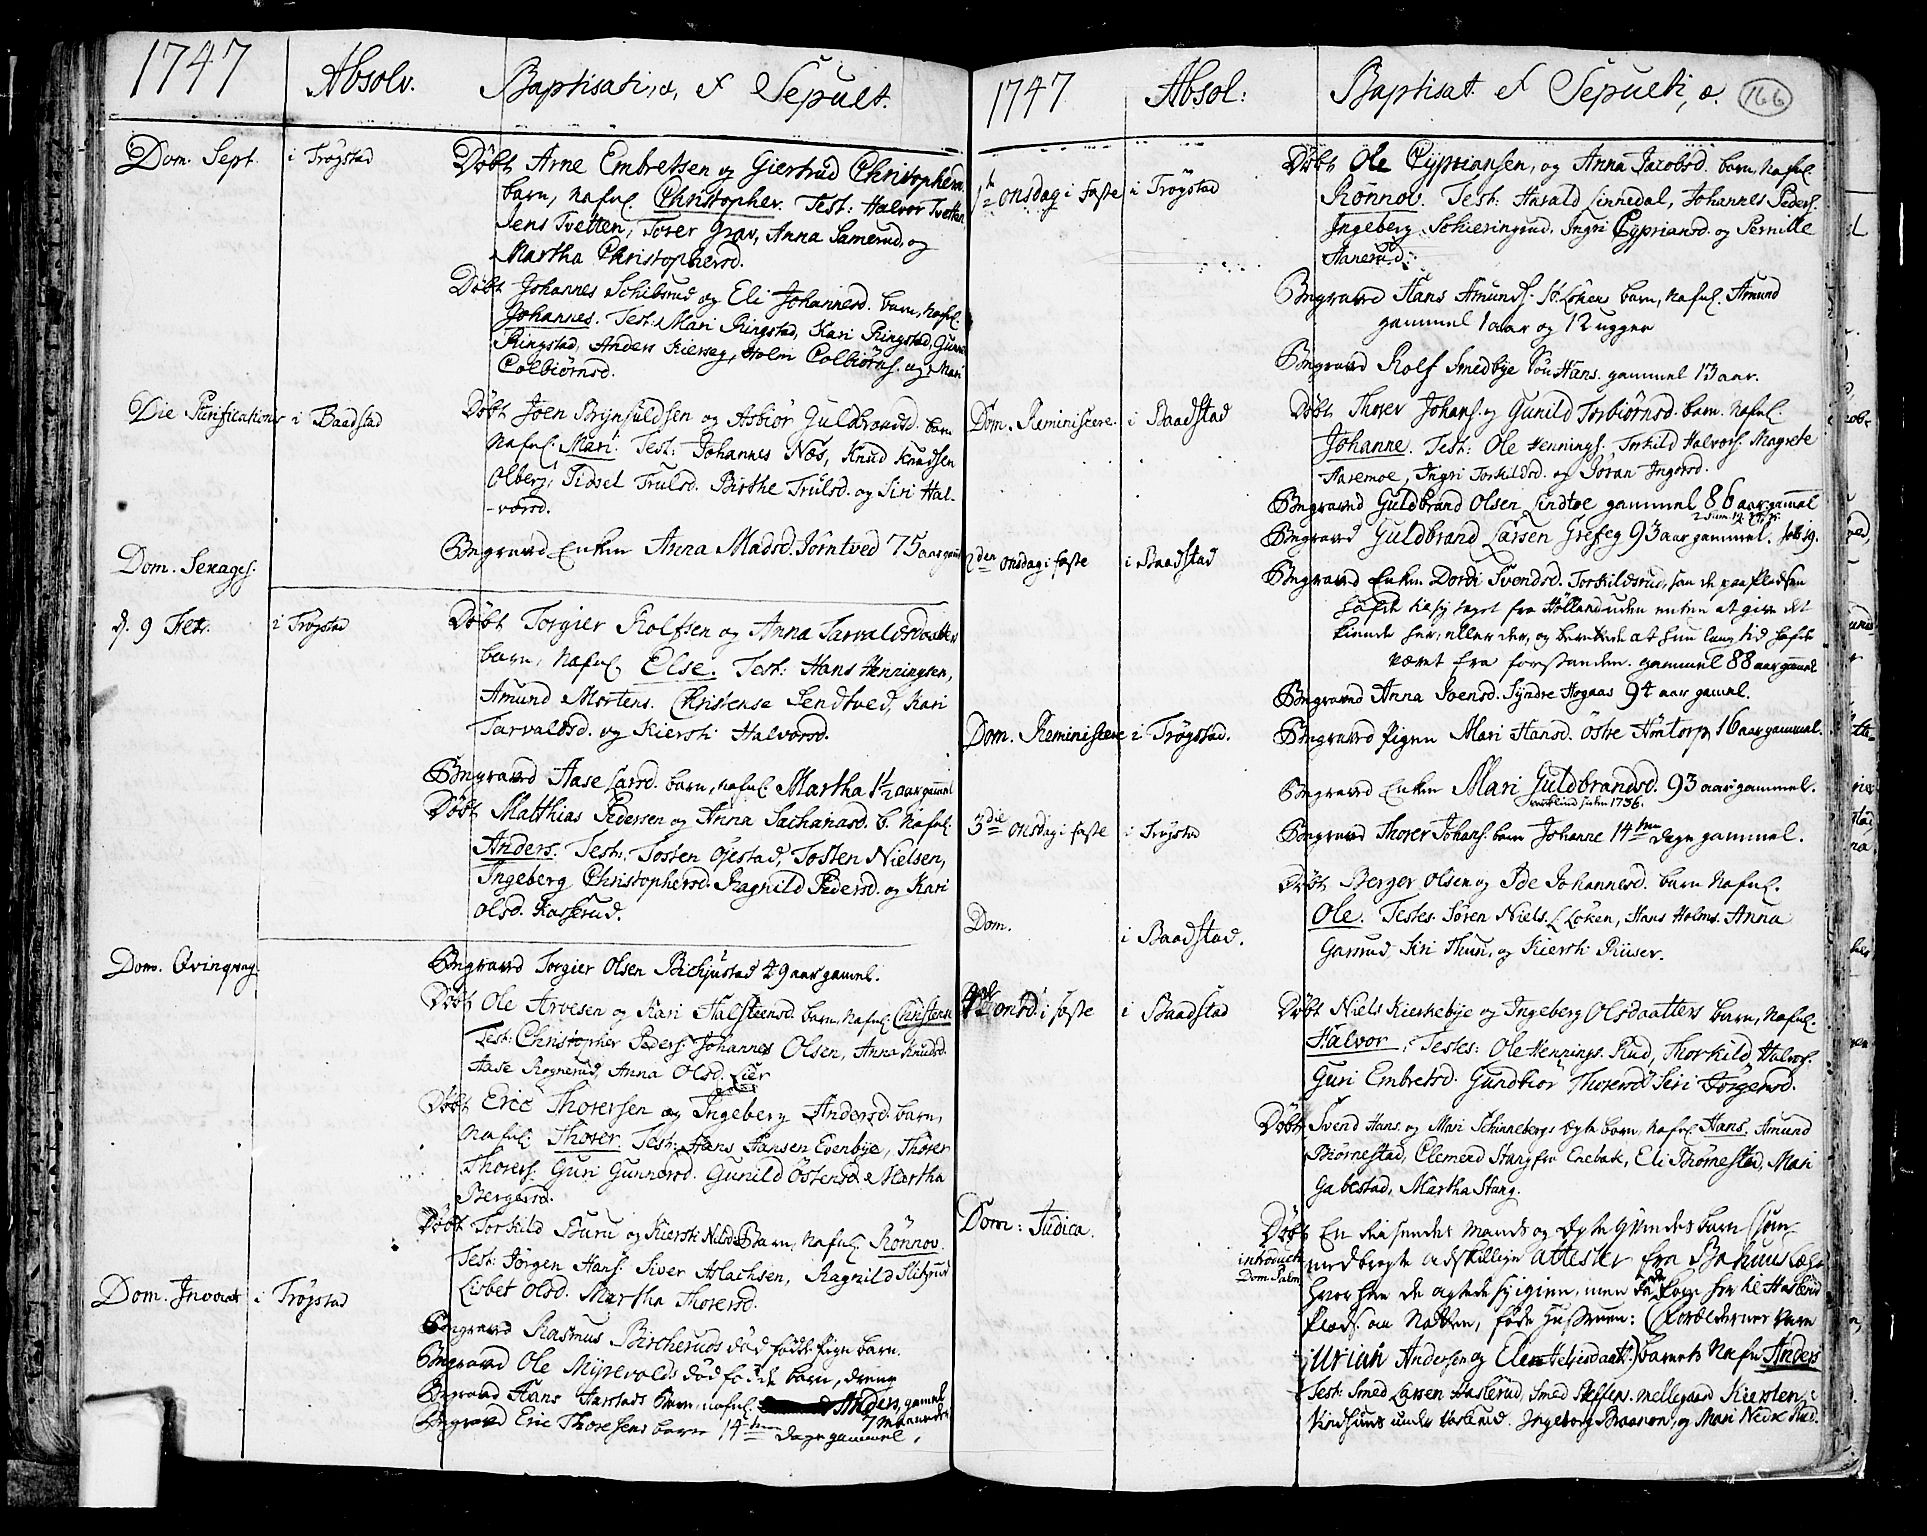 1747
Absolv.
Baptisati, et Sepult.
Dom. Sept. i Trøgstad
Døbt Arne Embretsen og Giertrud Christophersd.
barn, nafnl. Christopher. Test: Halvor Tvetten
Jens Tvetten, Torer Grav, Anna Samerud, og
Martha Christophersd.
Døbt Johannes Schibsrud og Eli Johannesd. barn, nafnl.
Johannes. Test: Mari Ringstad, Kari Ringstad,
Ringstad, Anders Kierseg, Holm Colbiørns. og Mari
Colbiørnsd.
Die Purificationis i Baadstad
Døbt Joen Brynfuldsen og Asbiør Guldbrandsd. barn
Nafnl. Mari. Test: Johannes Næs, Knud Knudsen
Olberg, Sidsel Trulsd. Birthe Trulsd. og Siri Hal-
-vorsd.
Begravd Enken Anna Madsd. Jørntved 75 aar gaml
Dom. Sexages.
d. 9 Febr. i Trøgstad
Døbt Torgier Rolfsen og Anna Tarvaldsdaatters
barn, Nafnl. Else. Test: Hans Henningsen,
Amund Mortens. Christense Sendtved, Kari
Tarvaldsd. og Kiersti Halvorsd.
Begravd Aase Larsd. barn, nafnl. Martha 1½ aar gammel
Døbt Matthias Pedersen og Anna Sachariasd. b. Nafnl.
Anders. Test: Tosten Ojestad, Tosten Nielsen,
Ingeberg Christophersd. Ragnild Pedersd. og Kari
Olsd. Kasserud.
Dom. Qvinqvag.
Begravd Torgier Olsen Bichjustad 49 aar gamel.
Døbt Ole Arvesen og Kari Halsteensd. barn, Nafnl. Christense
Test: Christopher Peders. Johannes Olsen, Anna Knudsd.
Aase Rognerud, Anna Olsd. Lier
Døbt Eric Thorersen og Ingeberg Andersd. barn,
Nafnl. Thorer. Test: Hans Hansen Evenbye, Thorer
Thorers. Guri Gunnersd. Gunild Østensd. & Martha
Bergersd.
Døbt Torkild Buru og Kiersti Nilsd. Barn, Nafnl. Rønnov.
Test: Jørgen Hans. Siver Aslachsen, Ragnild Slitsrud
Lisbet Olsd. Martha Thorersd.
Dom. Invocat i Trøgstad
Begravd Rasmus Bircheruds død fødde Pige barn.
Begravd Ole Myrevolds død fødde barn, dreng
Begravd Hans Harstads Barn, nafnl. Anders, gammel
7 maaneder
Begravd Eric Thorersens barn 14 dage gammel.
1747
Absol:
Baptisat. et Sepulti, a. 166
1te onsdag i faste i Trøgstad
Døbt Ole Cypriansen, og Anna Jacobsd. barn, Nafnl.
Rønnov. Test: Harald Linnedal, Johannes Peders.
Ingeberg Schieringrud, Ingri Cypriansd. og Pernille
Hanerud.
Begravd Hans Amunds. Sø. Løkens barn, Nafnl. Amund
gammel 1 aar og 12 uger
Begravd Rolf Smedbye Søn Hans. gammel 13 aar.
Dom. Reminiscere. i Baadstad
Døbt Thorer Johans. og Gunild Torbiørnsd. barn. Nafnl.
Johanne. Test: Ole Hennings. Torkild Halvors. Magrete
Aasemoe, Ingri Torkildsd. og Joran Ingersd.
Begravd Guldbrand Olsen Lindtoe gammel 86 aar gammel
2den onsdag i faste i Baadstad
Begravd Guldbrand Larsen Grefeg 93 aar gammel.
Begravd Enken Dordi Svendsd. Torkildsrud, som de paa Pladsen
hafde ha sig taget fra Hølland uden enten at give det
kiende her, eller der, og berettede at hun lang tid hafde
været fra forstanden. gammel 88 aar gammel
Begravd Anna Svensd. Syndre Hogaas 94 aar gamel.
Dom. Reminiscere i Trøgstad.
Begravd Pigen Mari Hansd. Østre Høntorp 16 aar gammel.
Begravd Enken Mari Guldbrandsd. 93 aar gammel.
1736.
3die onsdag i faste i Trøgstad
Begravd Thorer Johans. barn Johanne 14 dage gammel.
Døbt Berger Olsen og Ide Johannesd. barn Nafnl.
Ole. Testes. Søren Niels. Løken, Hans Holms. Anna
Garsrud, Siri Thun, og Kiersti Riiser.
Dom. i Baadstad.
onsd. i faste i Baadstad
Døbt Niels Kierkebye og Ingeberg Olsdaatters barn, Nafnl.
Halvor. Testes: Ole Hennings. Rud, Thorkild Halvors.
Guri Embretsd. Gundbiør Thorersd. Siri Jørgensd.
Døbt Svend Hans. og Mari Schinnebergs Egte barn, Nafnl. Hans. Amund
Biørnestad, Clemend Stang fra Enebak, Eli Biørnestad, Mari
Gabestad, Martha Stang.
Dom: Judica.
introduct.
Dom. Palm
Døbt En Reisendes Mands og Egte Qvindes barn (som
medbragte adskillige attester fra Bahuus Læhn
hvorhen de agtede sig igien, men da de kom for til Haslerud
Plads. om Natten, føde Hustruen: (Forældrenes Navn
Uriah Andersen og Elen Heljesdaatt.) barnets Nafn Anders
Test: Smed Larsen Haslerud, Smed Steffens. mellegaard Kirsten
under Haslerud. Ingeborg Braanen, og Mari Nedre Rud.